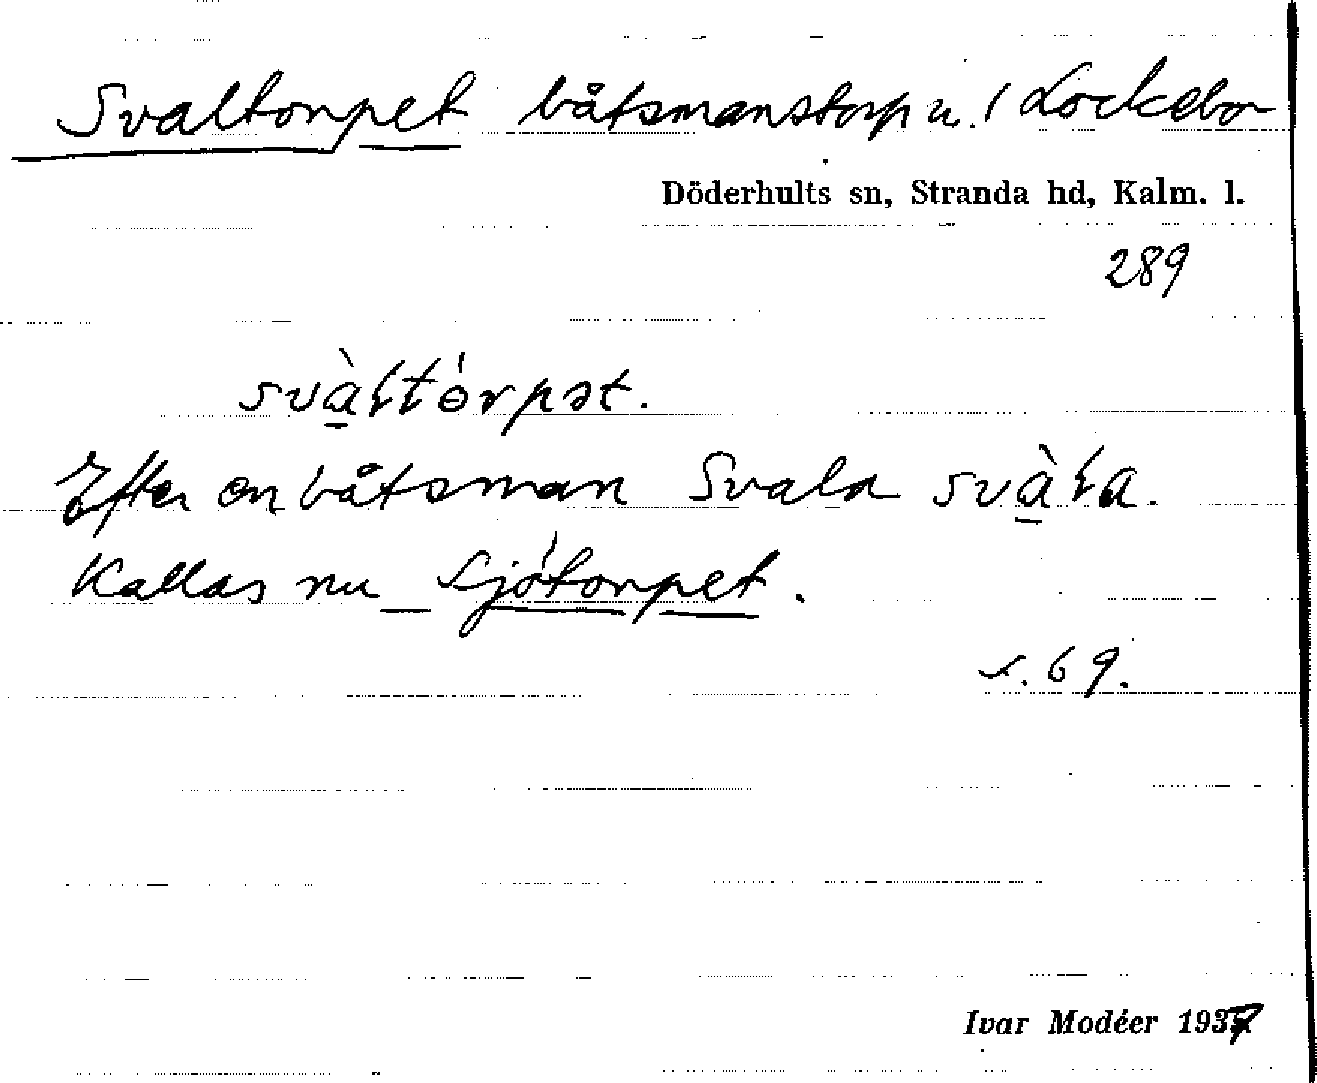 Svaltorpet båtsmanstorp u. / Lockebo
Döderhults sn, Stranda hd, Kalm. l.
289
svàłtórpət.
Efter en båtsman Svala svàła.
Kallas nu Sjótorpet.
s. 69.
Ivar Modéer 1937